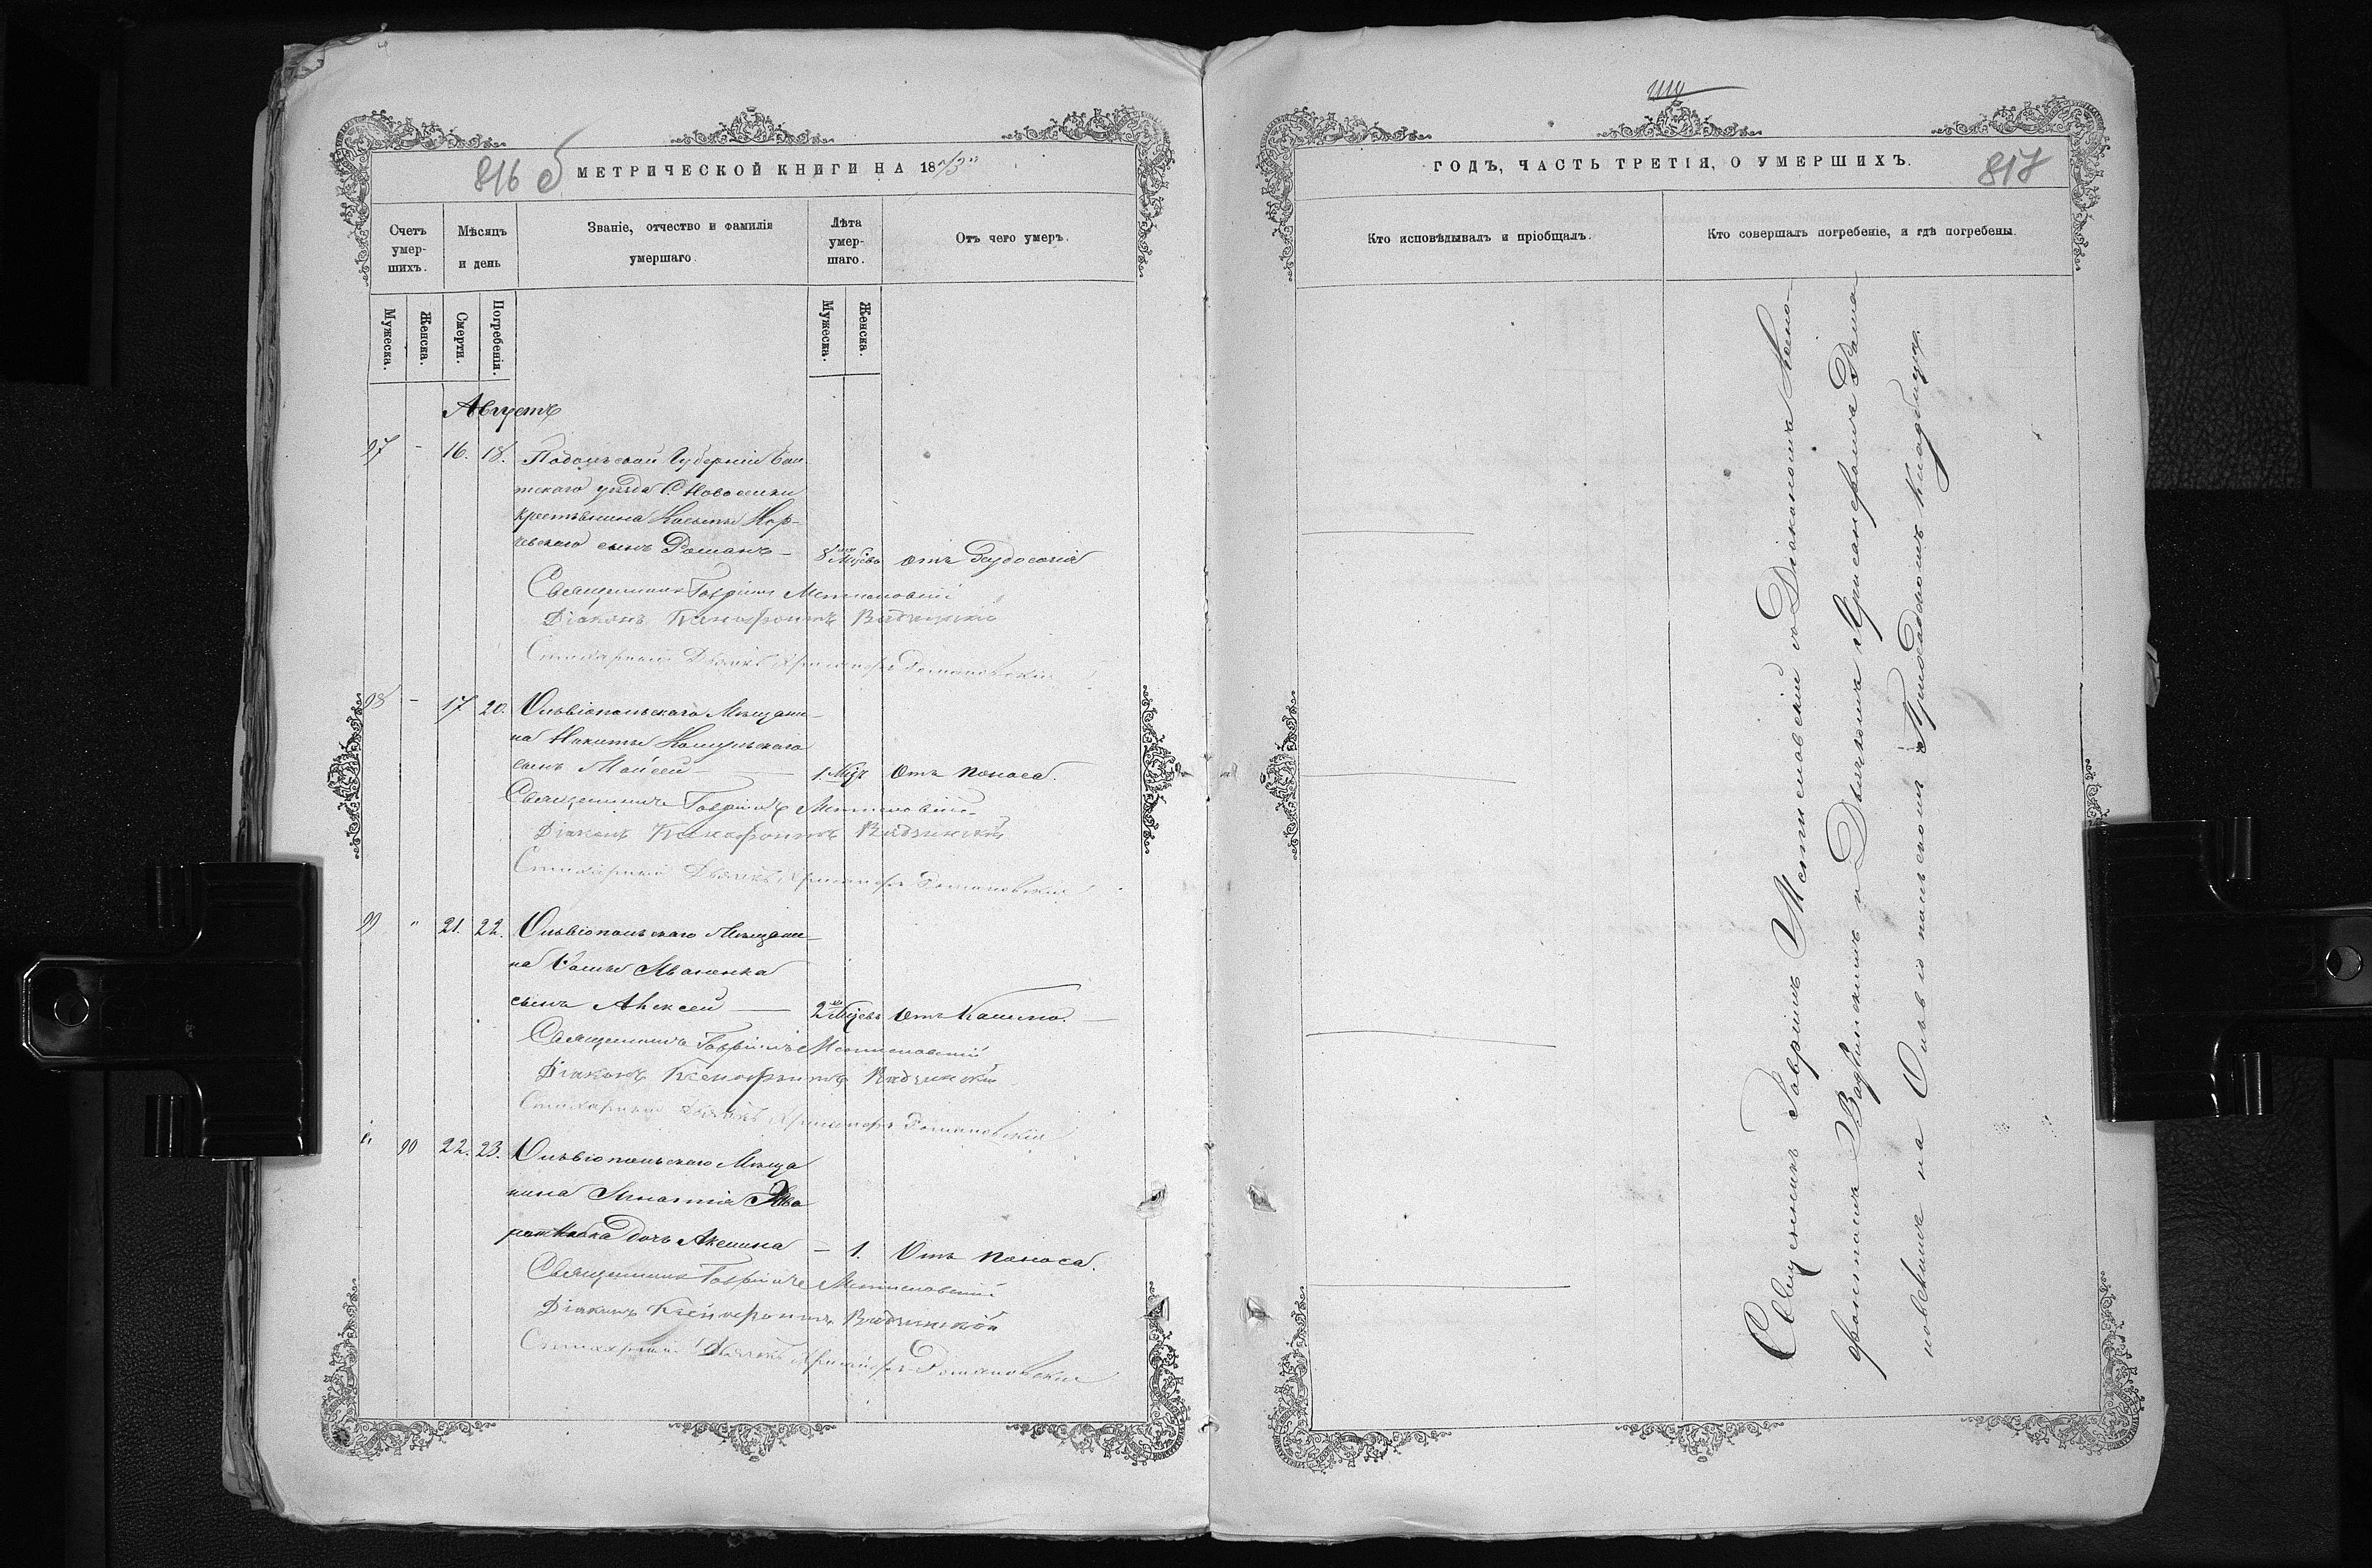 816 б
МЕТРИЧЕСКОЙ КНИГИ НА 1873
Счетъ умер-шихъ.
Мѣсяцъ и день
Званіе, отчество и фамилія умершаго
Лѣта умер-шаго.
Отъ чего умеръ.
Мужеска.
Женска.
Смерти.
Погребенія.
Мужеска.
Женска.
Августъ
97 - 16. 18. Подольской Губерніи Бал-
тскаго уѣзда С.
крестьянина Кор-
сынъ Романъ - 8 Мцевъ отъ
Священникъ Гавріилъ Мстиславскій
Діаконъ Ксенофонтъ Вадзинскій
Стихарный Дьячекъ Хрисанфъ Романовскій
98 - 17 20. Ольвіопольскаго Мѣщани-
на Никиты
сынъ Моисей - 1 Мцъ Отъ поноса.
Священникъ Гавріилъ Мстиславскій
Діаконъ Ксенофонтъ Вадзинскій
Стихарный Дьячекъ Хрисанфъ Романовскій
99 " 21. 22. Ольвіопольскаго Мѣщани-
на
сынъ Алексей - 2 Мцевъ Отъ Кашлю.
Священникъ Гавріилъ Мстиславскій
Діаконъ Ксенофонтъ Вадзинскій
Стихарный Дьячекъ Хрисанфъ Романовскій
" 90 22. 23. Ольвіопольскаго Мѣща
нина Игнатія
дочь Акелина - 1. Отъ поноса.
Священникъ Гавріилъ Мстиславскій
Діаконъ Ксенофонтъ Вадзинскій
Стихарный Дьячекъ Хрисанфъ Романовскій
ГОДЪ, ЧАСТЬ ТРЕТІЯ, О УМЕРШИХЪ.
817
Кто исповѣдывалъ и пріобщалъ.
Кто совершалъ погребеніе, и гдѣ погребены.
Священникъ Гавріилъ Мстиславскій съ Діакономъ Ксено-
фонтомъ Вадзинскимъ и Дьячкомъ Хрисанфомъ Рома
новскимъ на Ольвіопольскомъ Приходскомъ Кладбищѣ.